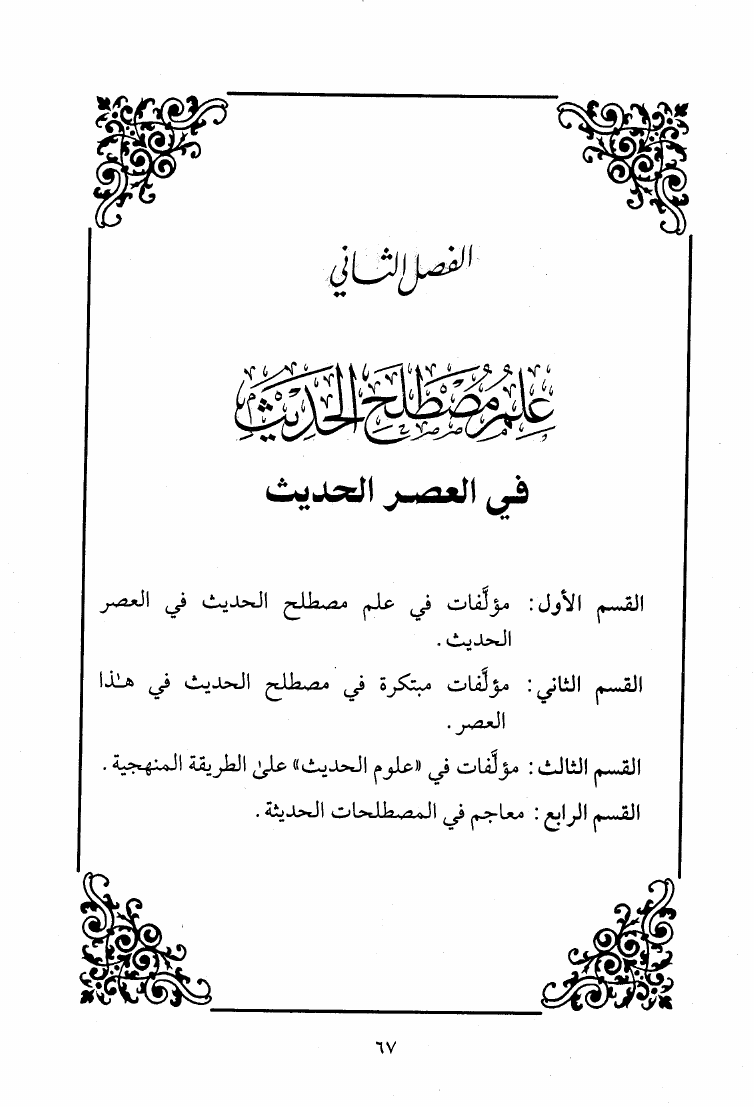 الفصل الثاني
عِلْمُ مُصْطَلَحِ الحَدِيثِ
في العصر الحديث
القسم الأول: مؤلَّفات في علم مصطلح الحديث في العصر
الحديث.
القسم الثاني: مؤلَّفات مبتكرة في مصطلح الحديث في هـٰذا
العصر.
القسم الثالث: مؤلَّفات في «علوم الحديث» علىٰ الطريقة المنهجية.
القسم الرابع: معاجم في المصطلحات الحديثة.
٦٧